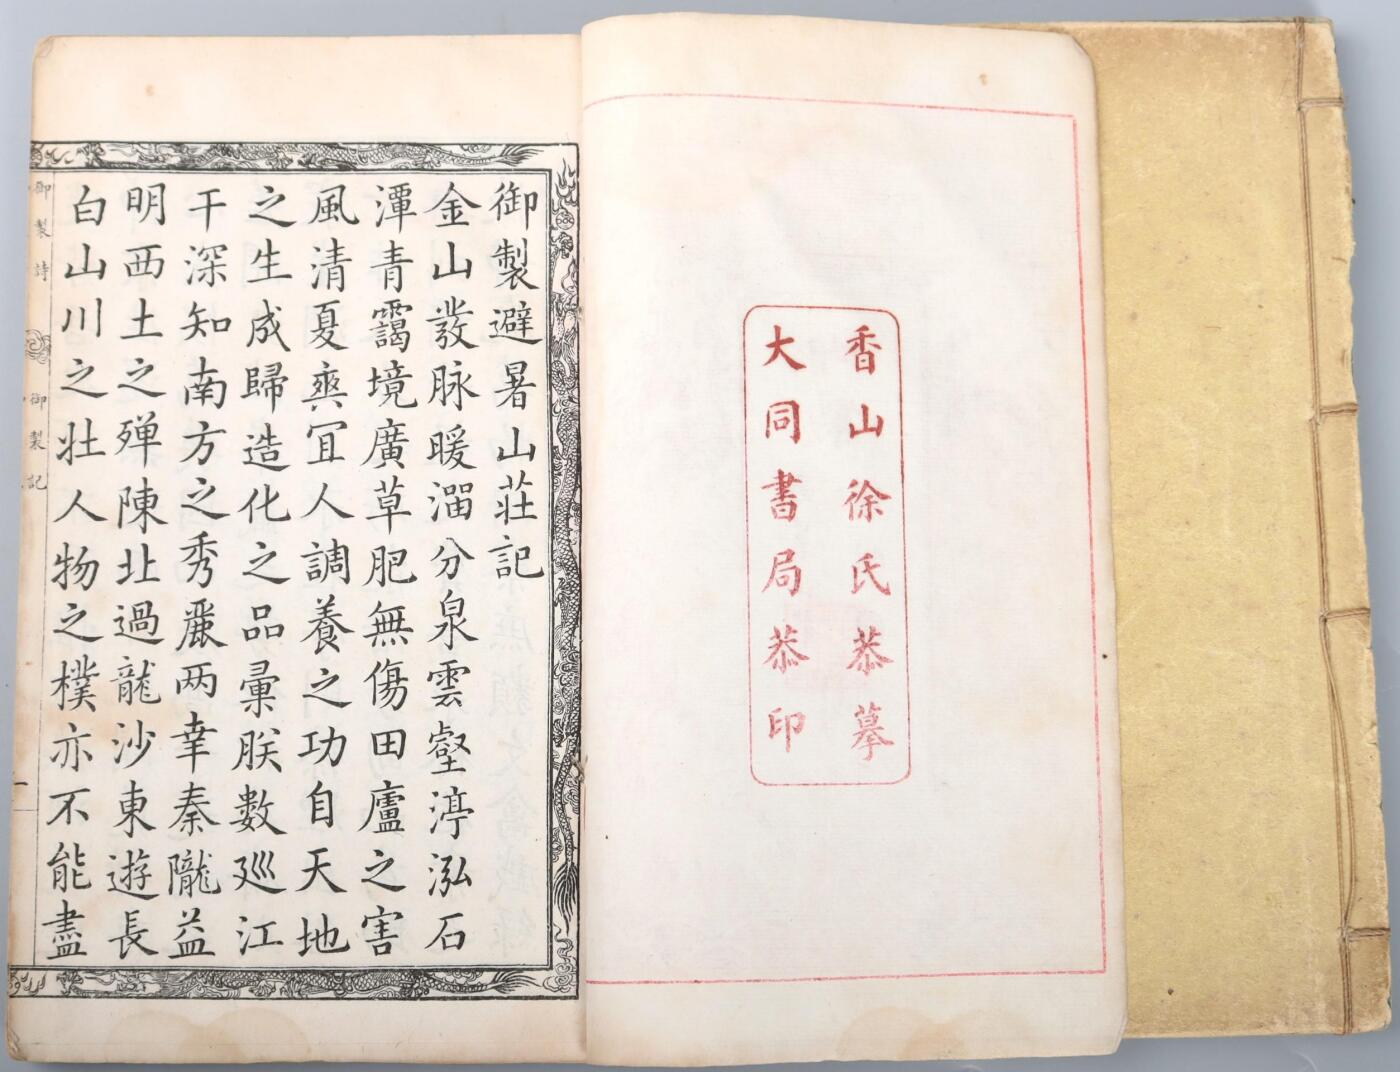 香山徐氏恭摹
大同書局恭印
御製避暑山莊記
金山發脉暖溜分泉雲壑渟泓石
潭青靄境廣草肥無傷田廬之害
風清夏爽宜人調養之功自天地
之生成歸造化之品彙朕數巡江
干深知南方之秀麗兩幸秦隴益
明西土之殫陳北過龍沙東遊長
白山川之壯人物之樸亦不能盡
御製詩
御製記
一